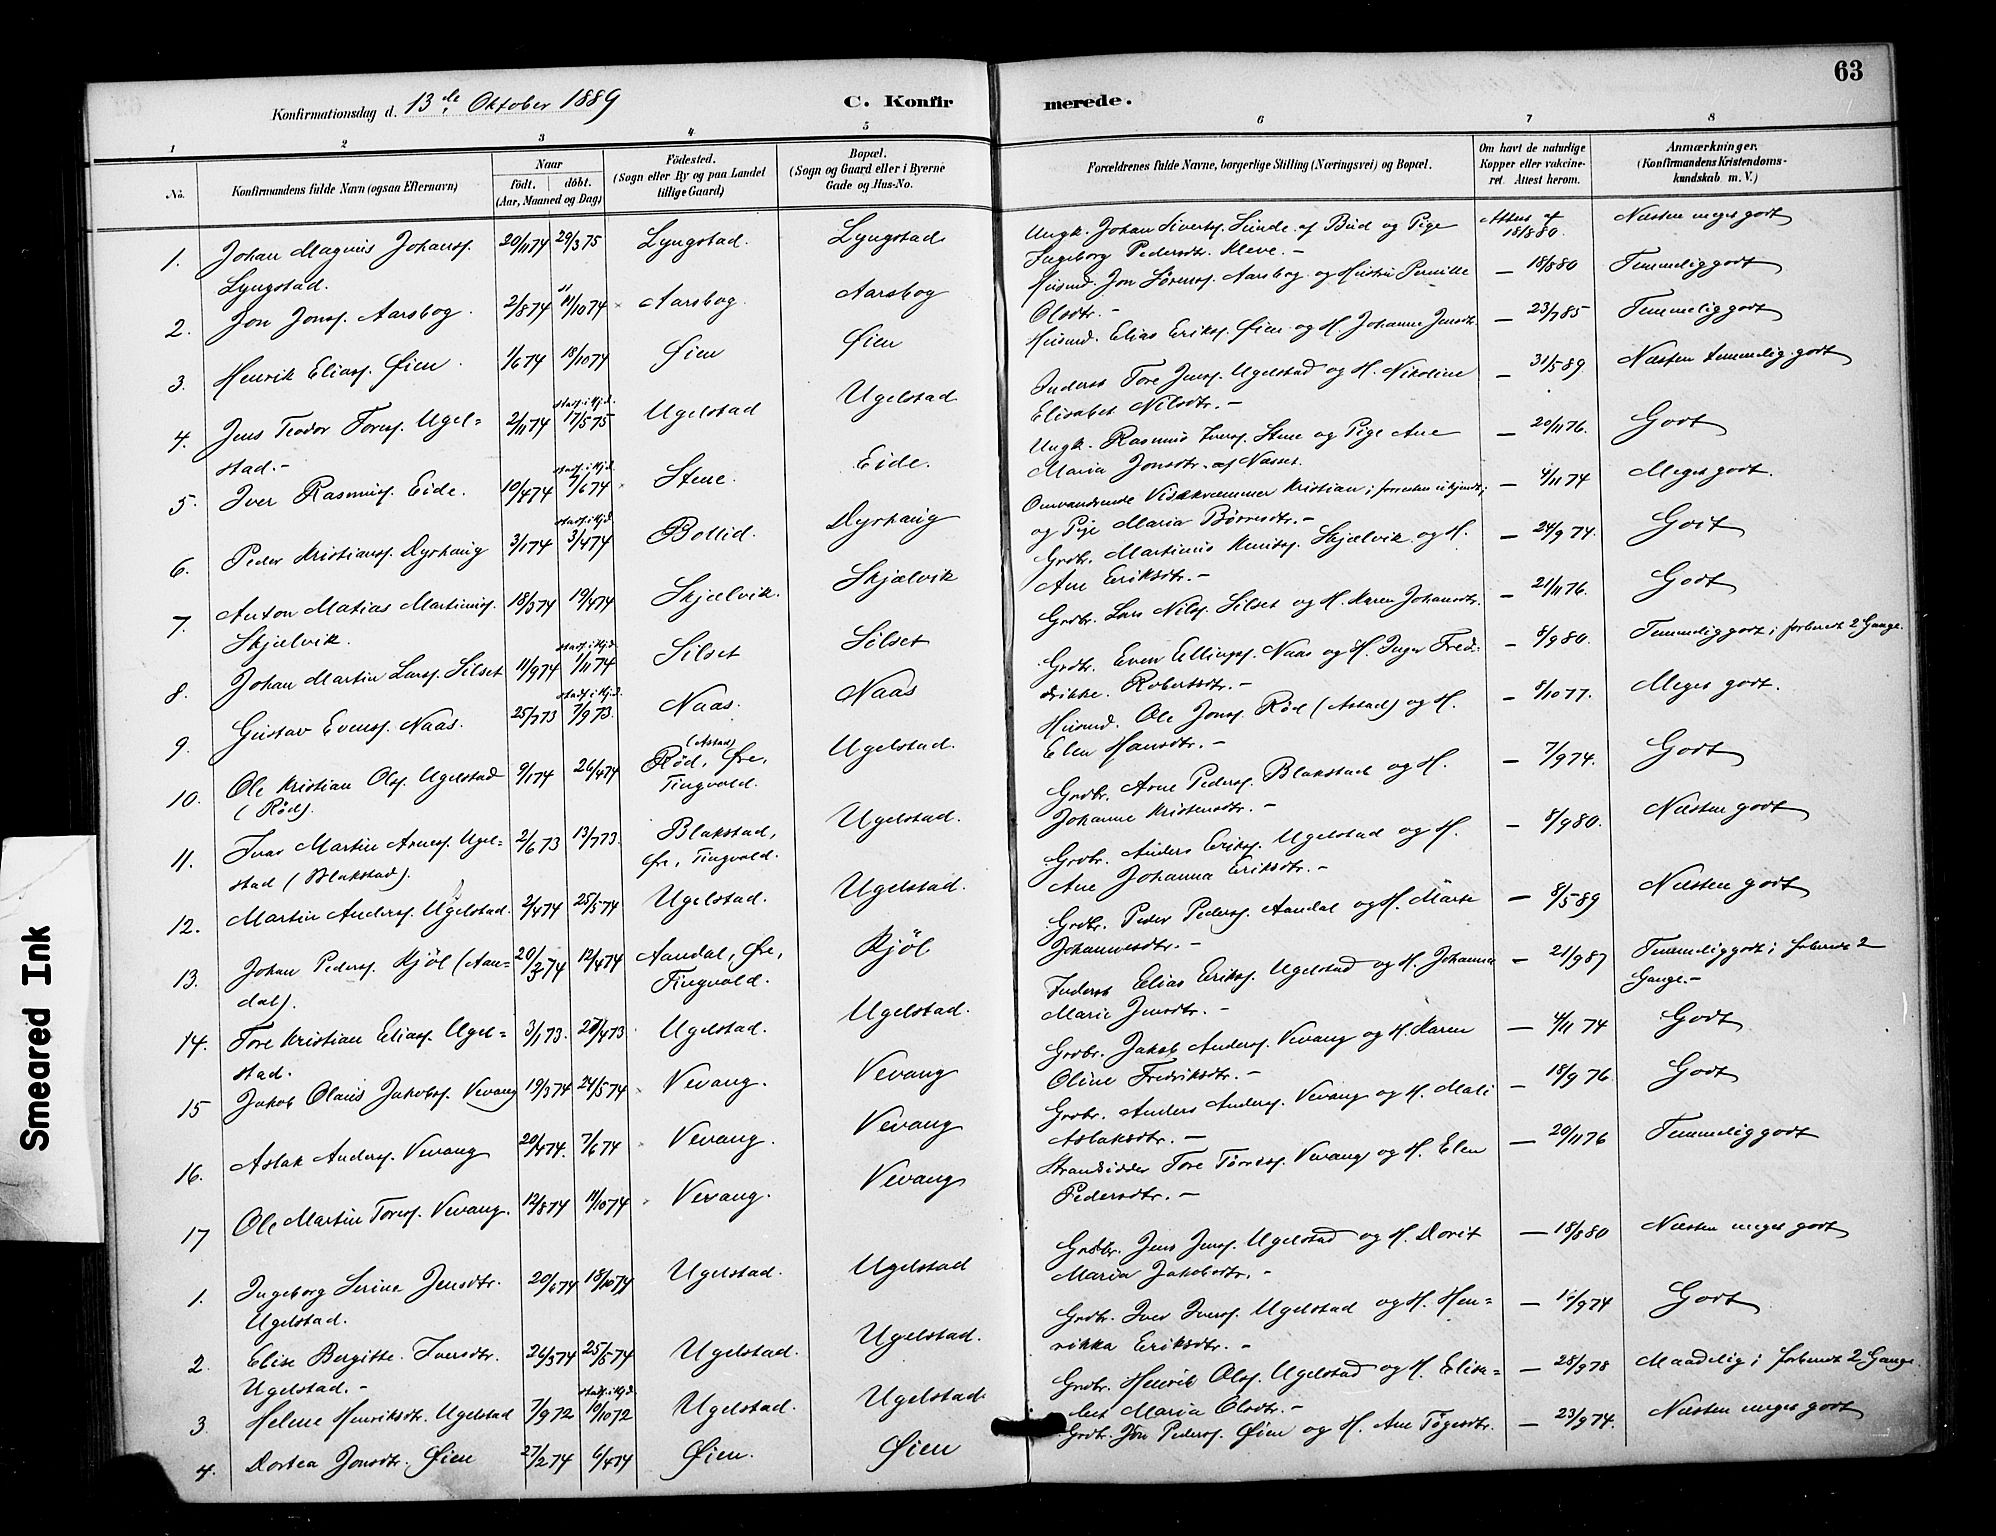 63
Konfirmationsdag d. 13de Oktober 1889
C. Konfirmerede.
1 2 3 4 5 6 7 8
No.
Konfirmandens fulde Navn (ogsaa Efternavn)
Naar
födt. döbt.
(Aar, Maaned og Dag)
Födested.
(Sogn eller By og paa Landet
tillige Gaard)
Bopæl.
(Sogn og Gaard eller i Byerne
Gade og Hus-No.
Forældrenes fulde Navne, borgerlige Stilling (Næringsvei) og Bopæl.
Om havt de naturlige
Kopper eller vakcine-
ret. Attest herom.
Anmærkninger.
(Konfirmandens Kristendoms-
kundskab m. V.)
1. Johan Magnus Johans. 20/11 74 29/3 75 Lyngstad. Lyngstad Ungk. Johan Siverts. Sunde af Bud og Pige Attest af 18/8 80. Næsten meget godt
Lyngstad. Ingeborg Pedersdtr. Kleve. -
2. Jon Jons. Aarsbog. 2/8 74 11/10 74 Aarsbog. Aarsbog Husmd. Jon Sörens. Aarsbog og Hustru Pernille — 18/8 80 Temmelig godt
Olsdtr. -
3. Henrik Elias. Øien. 1/6 74 18/10 74 Øien Øien Husmd. Elias Eriks. Øien og H. Johanne Jensdtr. — 23/7 85 Temmelig godt
4. Jens Teodor Tores. Ugel= 2/11 74 17/5 75 Ugelstad Ugelstad Inderst Tore Jens. Ugelstad og H. Nikoline — 31/5 89 Næsten temmelig godt
stad. - Elisabet Nilsdtr. -
5. Iver Rasmus. Eide. 10/4 74 7/6 74 Stene. Eide. Ungk. Rasmus Ivers. Stene og Pige Ane — 20/11 76. Godt
Maria Jonsdtr. af Næsset.
6. Peder Kristians. Dyrhaug 3/1 74 3/4 74 Bollid. Dyrhaug Omvandrende Kristian; forresten ukjendt; — 4/11 74 Meget godt.
og Pige Maria Börresdtr. -
7. Anton Matias Martinus. 18/3 74 19/4 74 Skjælvik. Skjælvik Grdbr. Martinus Knuts. Skjælvik og H. — 24/9 74. Godt
Skjælvik. Ane Eriksdtr. -
8. Johan Martin Lars. Silset 11/9 74 1/11 74 Silset Silset Grdbr. Lars Nils. Silset og H. Karen Johansdtr. — 21/11 76. Godt
9. Gustav Evens. Naas. 25/7 73 7/9 73. Naas. Naas Grdbr. Even Ellings. Naas og H. Inger Fred- — 8/9 80. Temmelig godt; forberedt 2 Gange.
drikke. Robertsdtr. -
10. Ole Kristian Ols. Ugelstad 9/1 74 26/4 74 (Astad) Röd, Øre, Ugelstad. Husmd. Ole Jons. Röd (Astad) og H. — 8/10 77. Meget godt.
(Röd). Tingvold. Elen Hansdtr. -
11. Ivar Martin Arnes. Ugel- 2/6 73 13/7 73. Blakstad, Ugelstad. Grdbr. Arne Peders. Blakstad og H. — 7/9 74. Godt
stad (Blakstad). Øre, Tingvold. Johanne Kristensdtr. -
12. Martin Anders. Ugelstad. 2/4 74 25/5 74 Ugelstad. Ugelstad. Grdbr. Anders Eriks. Ugelstad og H. — 8/9 80. Næsten godt
Ane Johanna Eriksdtr. -
13. Johan Peders. Kjöl (Aan- 20/2 74 12/4 74 Aandal, Øre, Kjöl Grdbr. Peder Peders. Aandal og H. Marte — 8/5 89 Næsten godt
dal). Tingvold. Johannesdtr. -
14. Tore Kristian Elias. Ugel= 3/1 73. 27/4 73 Ugelstad. Ugelstad. Inderst Elias Eriks. Ugelstad og H. Johanna — 21/9 87 Temmelig godt; forberedt 2
stad. Marie Jensdtr. - Gange. -
15 Jakob Olaus Jakobs. Vevang 19/3 74 24/5 74 Vevang. Vevang Grdbr. Jakob Anders. Vevang og H. Karen — 4/11 74 Godt
Oline Fredriksdtr. -
16. Aslak Anders. Vevang 20/4 74. 7/6 74 Vevang. Vevang Grdbr. Anders Anders. Vevang og H. Mali — 18/9 76 Godt
Aslaksdtr. -
17 Ole Martin Tores. Vevang. 12/8 74 11/10 74 Vevang. Vevang Strandsidder Tore Tores. Vevang og H. Elen — 20/11 76 Temmelig godt
Pedersdtr. -
1. Ingeborg Serine Jensdtr. 20/6 74 18/10 74 Ugelstad. Ugelstad Grdbr. Jens Jens. Ugelstad og H. Dorit — 18/8 80 Næsten meget godt
Ugelstad. Maria Jakobsdtr. -
2. Elise Bergitte Iversdtr. 26/3 74 25/5 74 Ugelstad. Ugelstad. Grdbr. Iver Ivers. Ugelstad og H. Hen= — /9 74 Godt
Ugelstad. - rikka Eriksdtr. -
3 Helene Henriksdtr. Ugelstad 7/9 72 19/10 72 Ugelstad. Ugelstad Grdbr. Henrik Ols. Ugelstad og H. Elisa= — 28/9 78 Maadelig; forberedt 2 Gange.
bet Maria Olsdtr. -
4. Dortea Jonsdtr. Øien 27/2 74 6/4 74 Øien. Øien Grdbr. Jon Peders. Øien og H. Ane Tögesdtr. — 23/9 74. Næsten meget godt
Smeared Ink